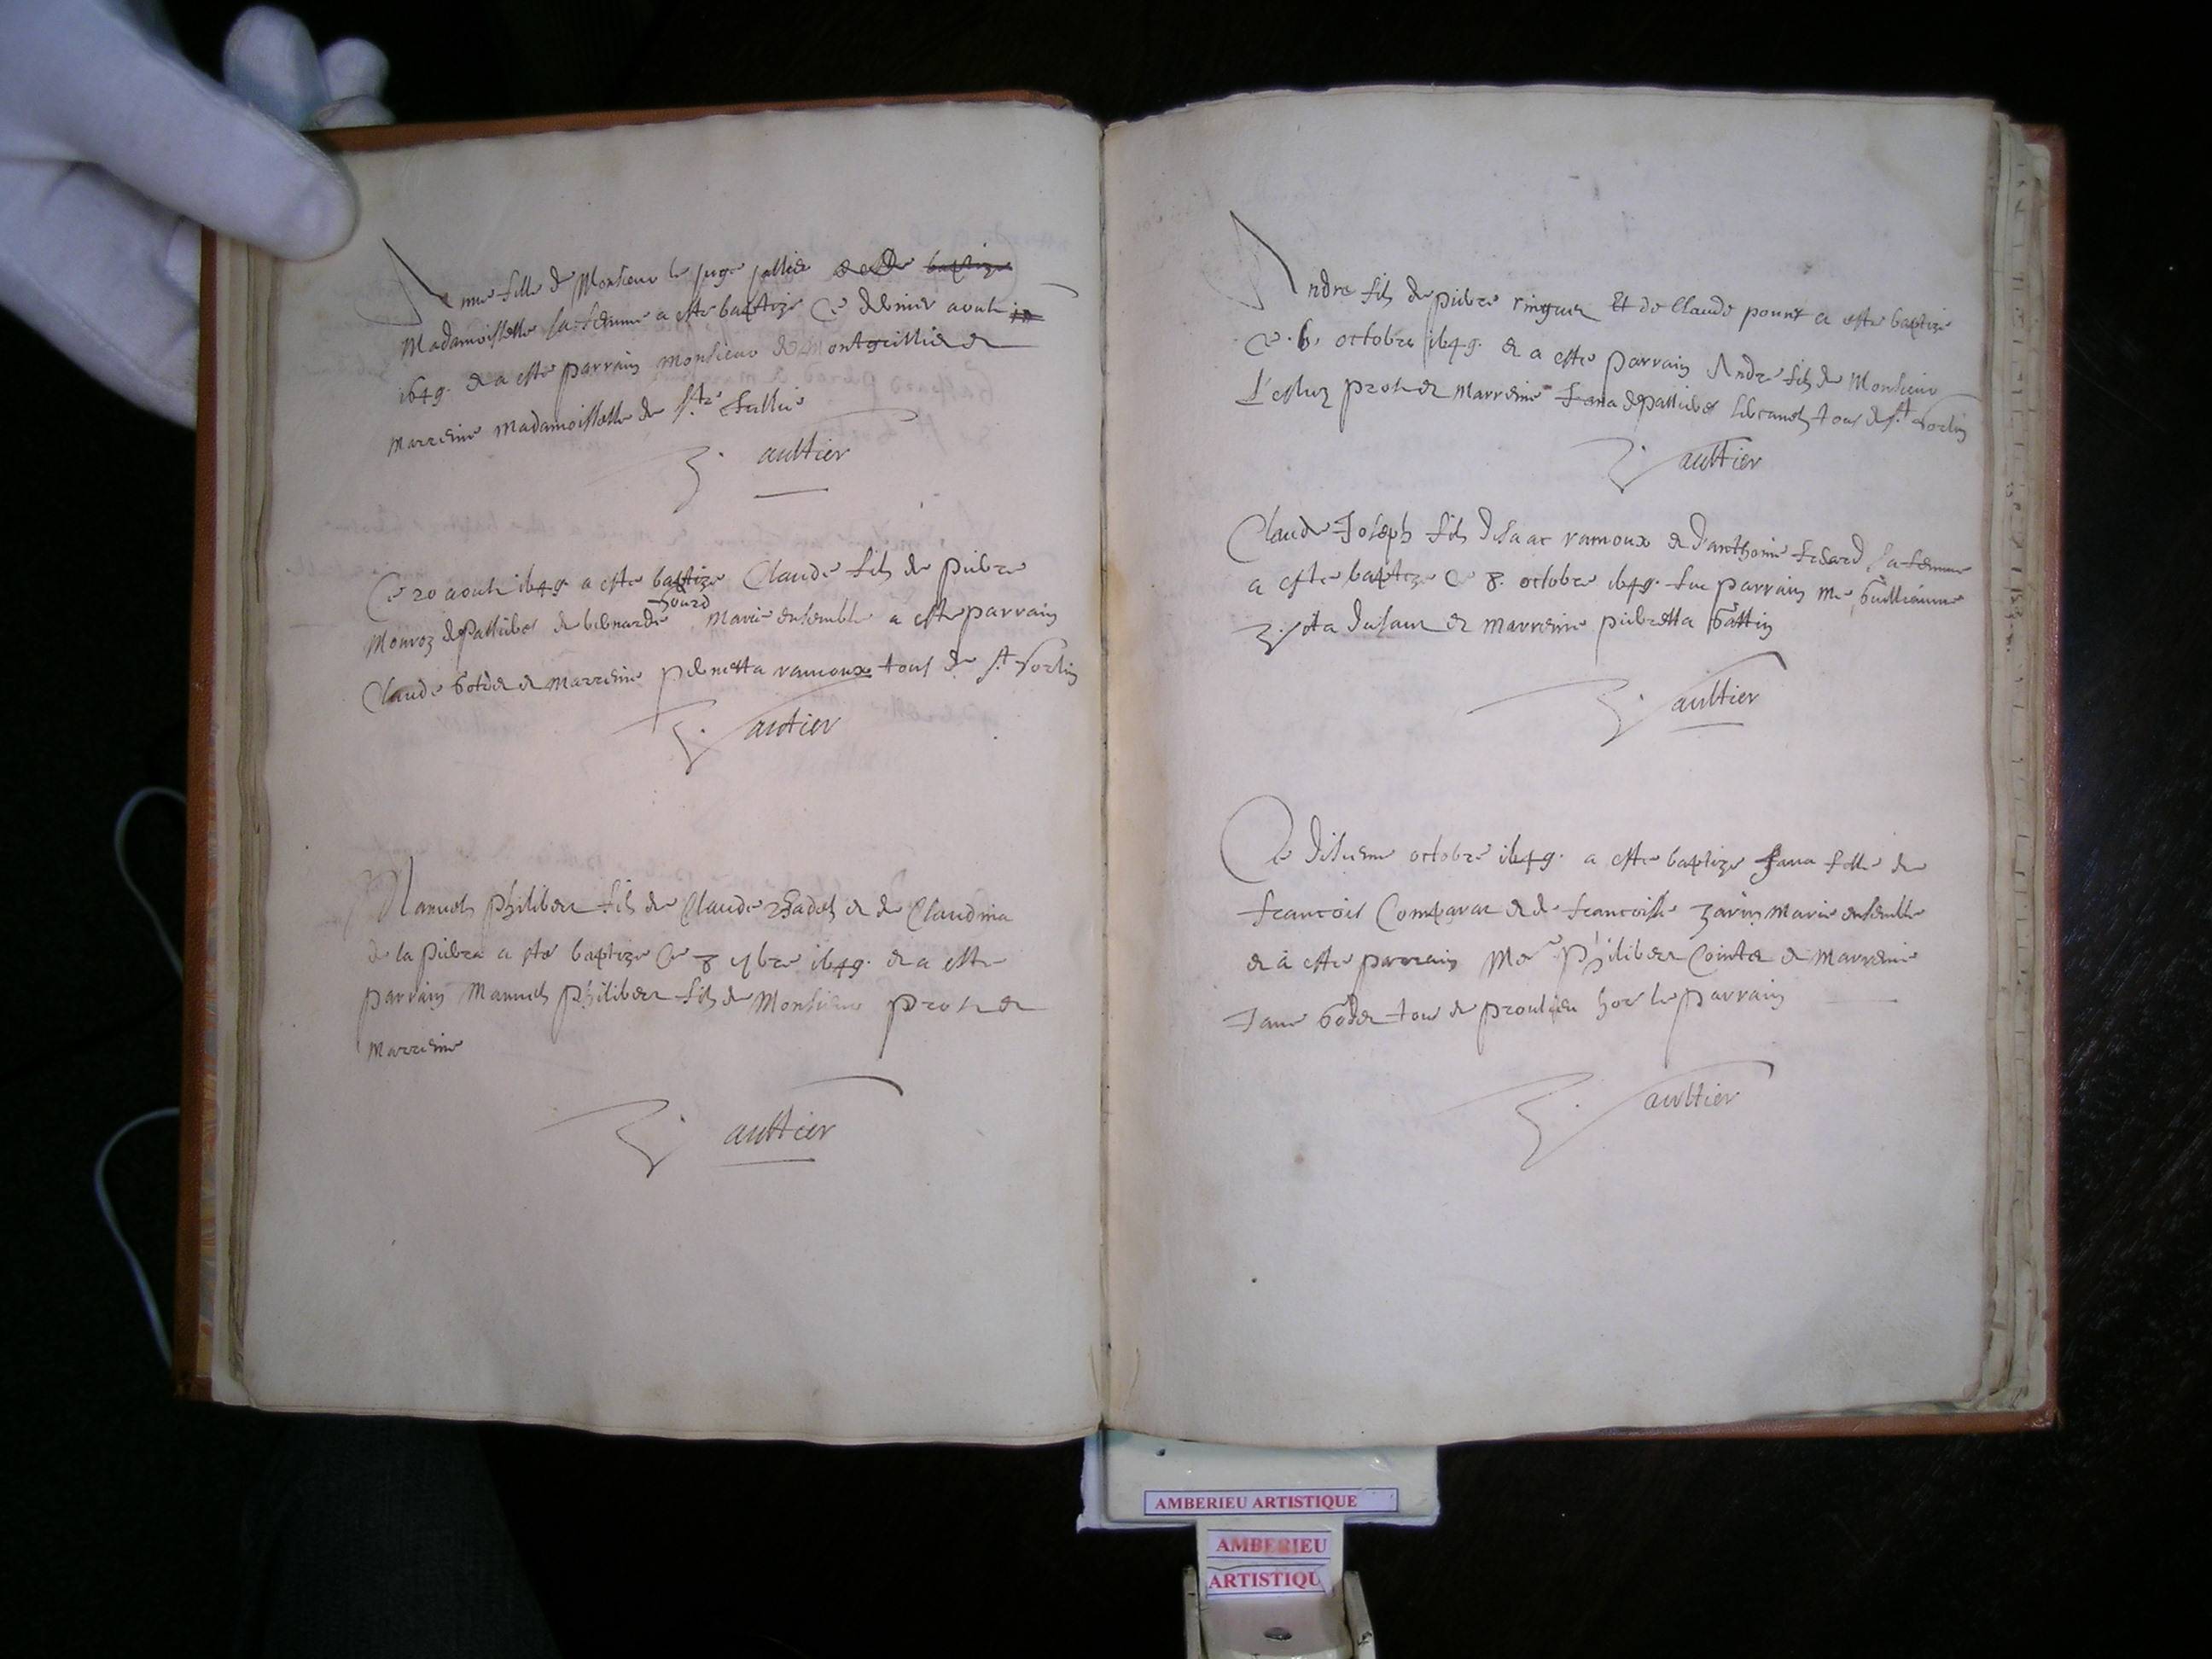 Anne fille de Monsieur le juge jallier
Madamoiselle sa femme a este baptize Ce dernier aoust
1649. et a este parrain monsieur de Montgrillier et
marreine Madamoiselle de Ste Jullie
aultier
Ce 20 aoust 1649 a este baptize Claude fils de pierre
sourd
Monroz depalluier et bernarde Marie ensemble a este parrain
Claude et marreine pernetta ramoux tous de St Sorlin
autier
Manuel philiber fils de Claude et de Claudina
de la pierra a este baptize Ce 8 7bre 1649. et a este
parrain Manuel philiber fils de Monsieur prost et
marreine
aultier
Andre fils de pierre ringuet Et de Claude a este baptize
Ce 6 octobre 1649. et a este parrain Andre fils de Monsieur
L'esleu prost et marreine tous de St Sorlin
aultier
Claude Joseph fils disaac ramoux et d'anthoine sa femme
a este baptize Ce 8. octobre 1649. fut parrain me Guilliaume
et marreine pierretta
aultier
Ce octobre 1649. a este baptize Jana fille de
francois Comparat et de francoise Marie ensemble
et a este parrain Me Philiber Cointet et Marreine
Jane tous de proulieu hors le parrain
aultier
AMBERIEU ARTISTIQUE
AMBERIEU
ARTISTIQU